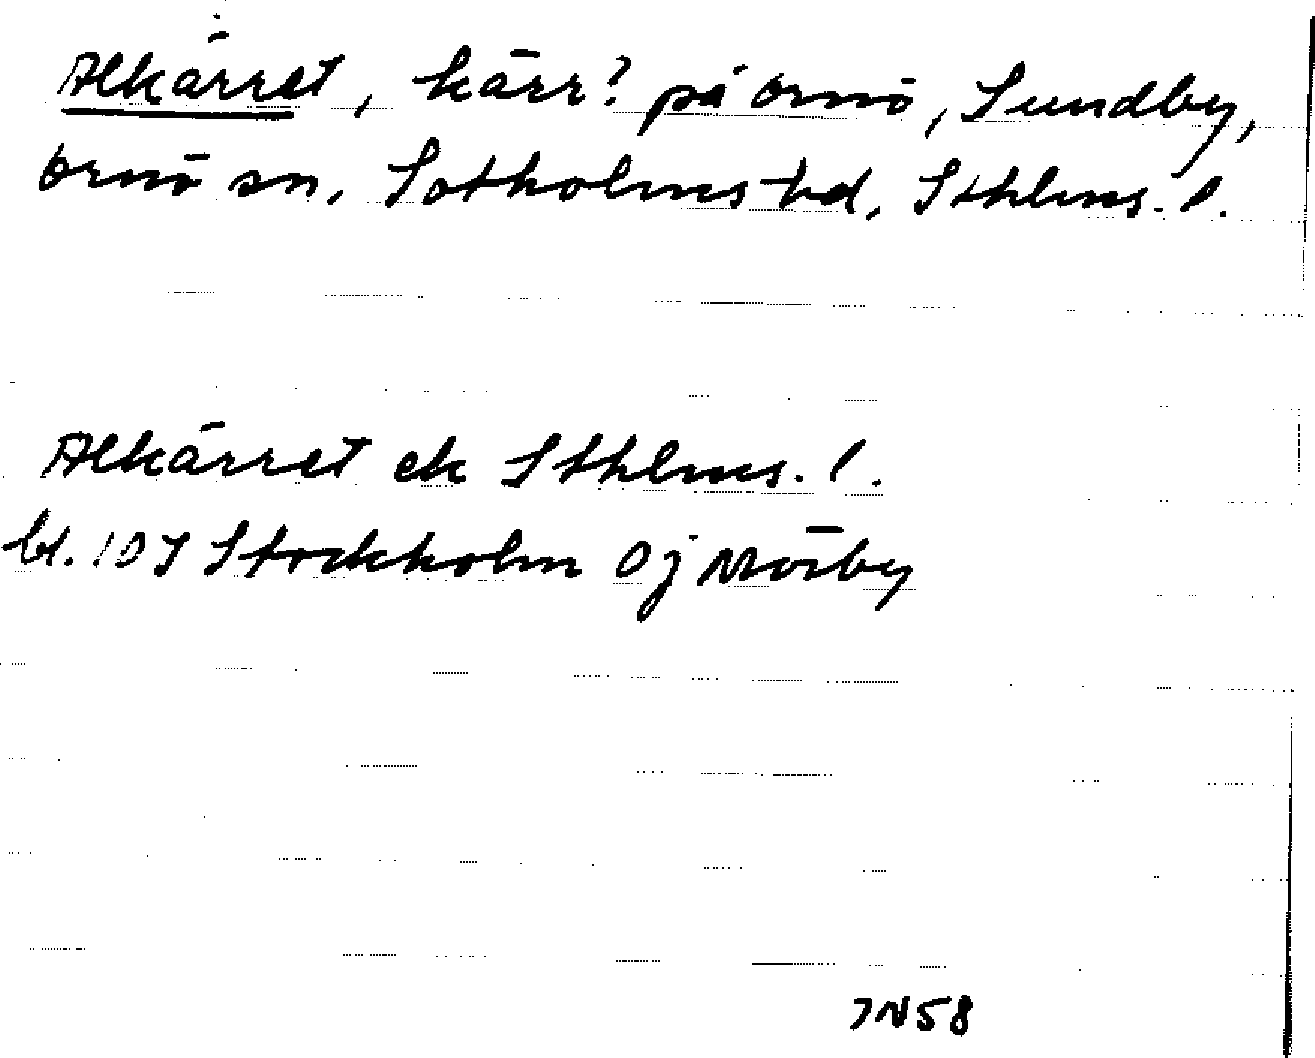 Alkärret, kärr? på Ornö, Sundby,
Ornö sn, Sotholms hd, Sthlms. l.
Alkärret ek Sthlms. l.
bl. 10J Stockholm Oj Mörby
JN58